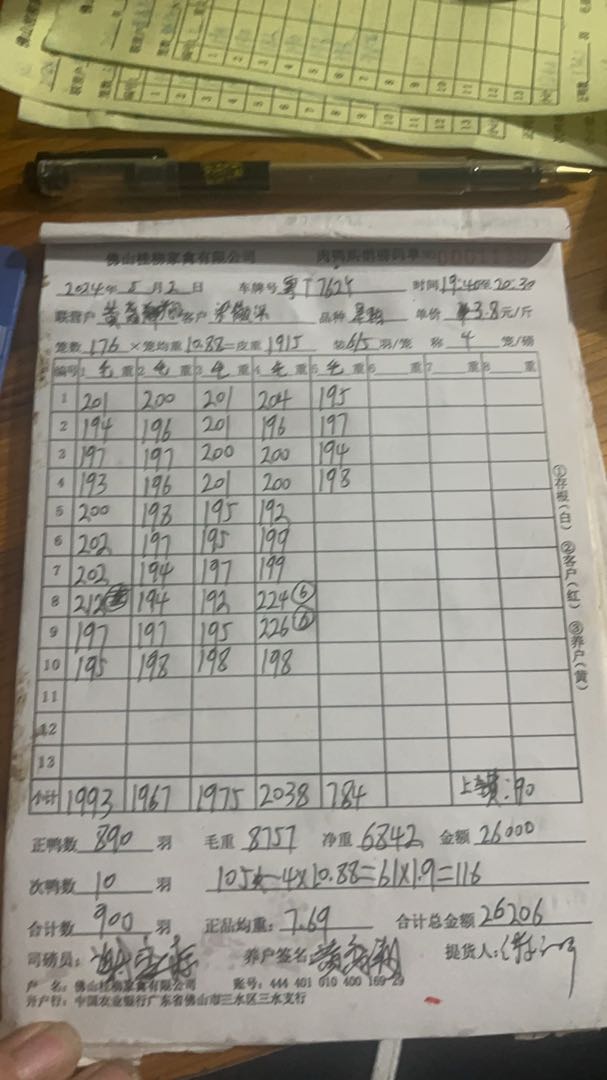 佛山桂柳家禽有限公司 肉鸭购销磅码单
2024年8月2日 车牌号 粤T7624 时间19:40至20:30
联营户 客户 品种 单价 ¥3.8元/斤
笼数176×笼均重10.88=皮重1915 装6/5羽/笼 称4笼/磅
编号 1毛重 2毛重 3毛重 4毛重 5毛重 6 重 7 重 8 重
1 201 200 201 204 195
2 194 196 201 196 197
3 197 197 200 200 194
4 193 196 201 200 198
5 200 198 195 192
6 202 197 195 199
7 202 194 197 199
8 212 194 192 224⑥
9 197 197 195 226⑥
10 195 198 198 198
11
12
13
小计 1993 1967 1975 2038 784 上车费:90
正鸭数 890 羽 毛重 8757 净重 6842 金额 26000
次鸭数 10 羽 105 -4×10.88=61×1.9=116
合计数 900 羽 正品均重: 7.69 合计总金额 26206
司磅员: 养户签名: 提货人:
户 名: 佛山桂柳家禽有限公司 账号: 444 401 010 400 169 29
开户行: 中国农业银行广东省佛山市三水区三水支行
①存根(白) ②客户(红) ③养户(黄)